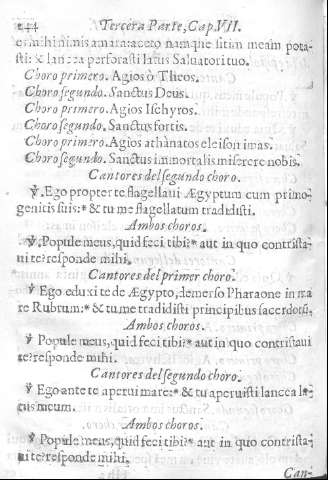 244 Tercera Parte, Cap. VII.
es mihi nimis amara: aceto namque sitim meam pota-
sti: & lancea perforasti latus Saluatori tuo.
Choro primero. Agios ò Theos.
Choro segundo. Sanctus Deus.
Choro primero. Agios Ischyros.
Choro segundo. Sanctus fortis.
Choro primero. Agios athànatos eleison imas.
Choro segundo. Sanctus immortalis miserere nobis.
Cantores del segundo choro.
℣. Ego propter te flagellaui Ægyptum cum primo-
genitis suis:* & tu me flagellatum tradidisti.
Ambos choros.
℣. Popule meus, quid feci tibi?* aut in quo contrista-
ui te? responde mihi.
Cantores del primer choro.
℣ Ego eduxi te de Ægypto, demerso Pharaone in ma
re Rubrum:* & tu me tradidisti principibus sacerdotũ.
Ambos choros.
℣ Popule meus, quid feci tibi?* aut in quo contristaui
te? responde mihi.
Cantores del segundo choro.
℣ Ego ante te aperui mare:* & tu aperuisti lancea la-
tus meum.
Ambos choros.
℣ Popule meus, quid feci tibi?* aut in quo contrista-
ui te? responde mihi.
Can-